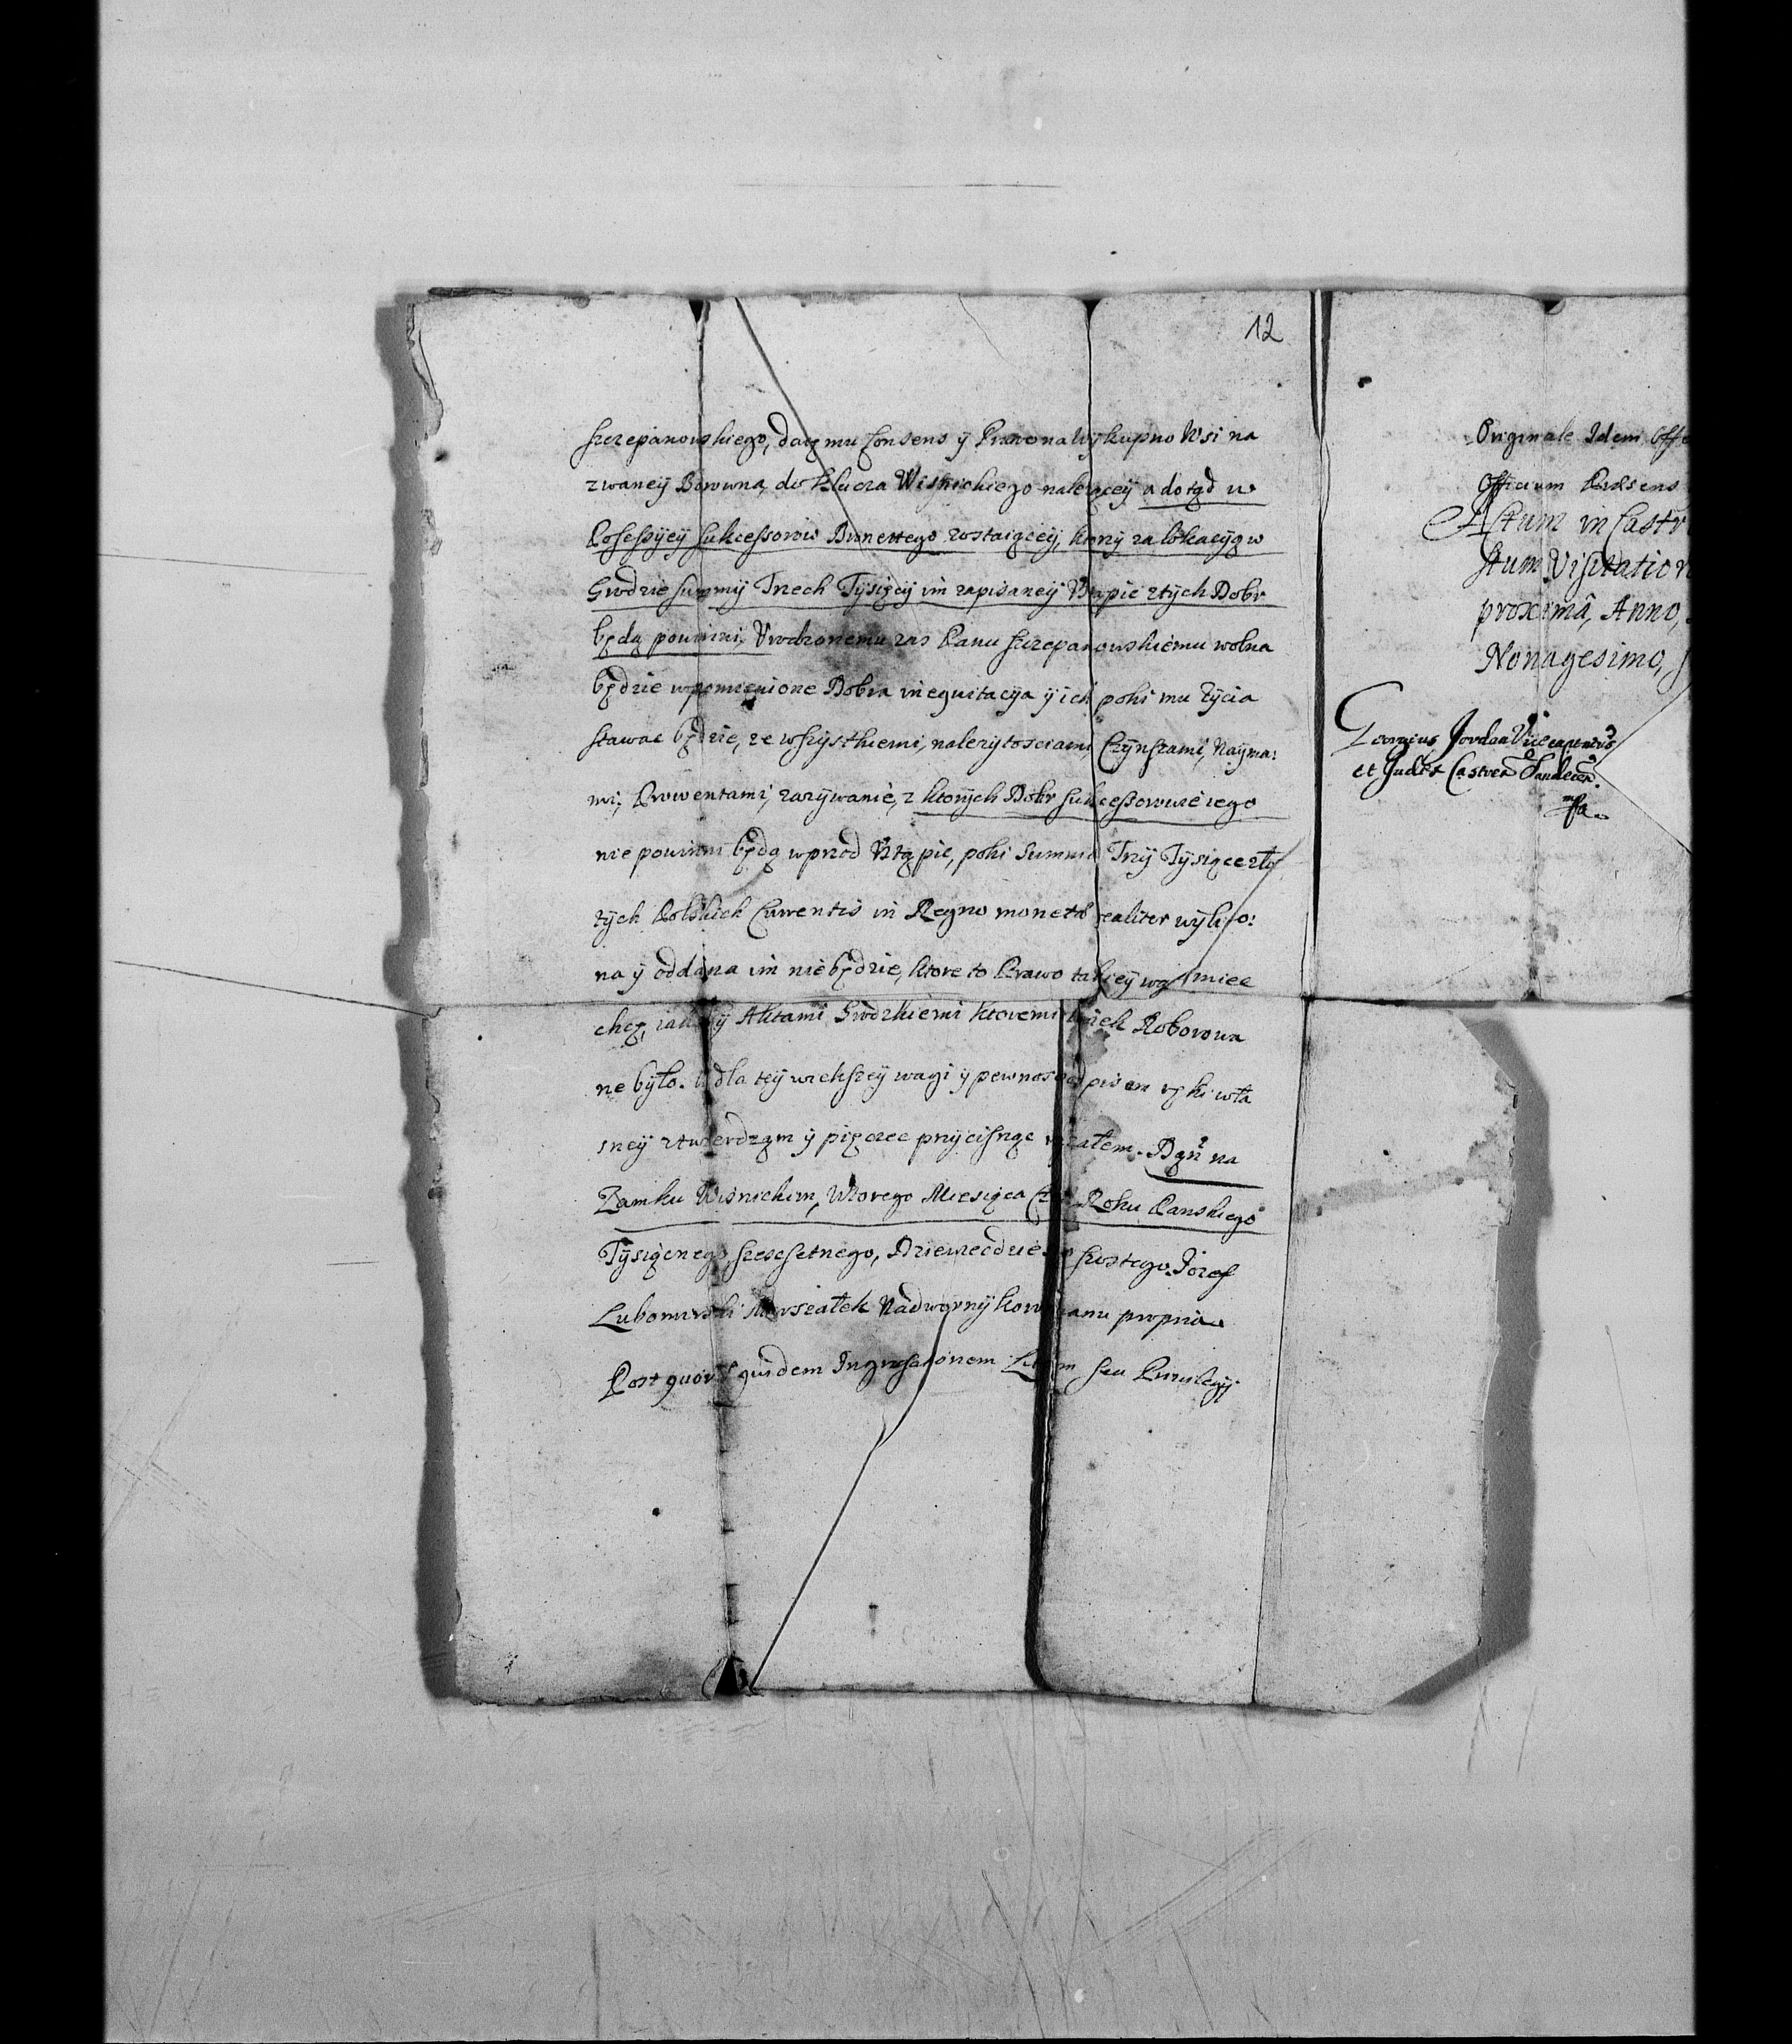 12
szczepanowskiego, daię mu Consens ÿ Prawo na Wÿkupno Wsi na
zwaneÿ Borowna, do Klucza Wisnickiego należąceÿ a dotąd w
Possessÿeÿ sukcessorow Bronettego zostaiąceÿ, ktorÿ za lokacyią w
Grodzie summÿ Trzech Tÿsięcÿ im zapisaneÿ Vstąpić z tÿch Dobr
będą powinni, Vrodzonemu zas Panu szczepanowskiemu wolna
będzie wpomienione Dobra inequitacÿa ÿ ich poki mu żÿcia
stawac będzie, ze wszÿstkiemi, należytosciami, Czÿnszami, Naÿma:
mi, Prowentami, zażÿwanie, z ktorÿch Dobr sukcessorowie iego
nie powinni będą wprzod Vstąpic, poki summa Trzÿ Tÿsiące zło
tÿch Polskich Currentis in Regno monetæ realiter wÿliczo:
na ÿ oddana im nie będzie, ktore to Prawo takieÿ wagi miec
chcę, ÿ Aktami Grodzkiemi ktoremi Roborowa
ne bÿło. dla teÿ wiekszeÿ wagi ÿ pewnosci ręki wła
sneÿ ztwierdzam ÿ pięczec przÿcisnąc Dan na
Zamku Wisnickim, Wtorego Miesiąca Roku Panskiego
Tÿsiącnego szescsetnego, Dziewiecdzie szostego. Jozef
Lubomirski Marszałek Nadwornÿ Kor manu propria
Post quor quidem Ingrossationem seu Privilegÿ
Originale Idem Offe
Officium Præsens
Actum in Castr
stum Visitation
proximâ, Anno,
Nonagesimo,
Georgius Jordan Vicecapitneus
et Judex Castren Sandecen
mpa